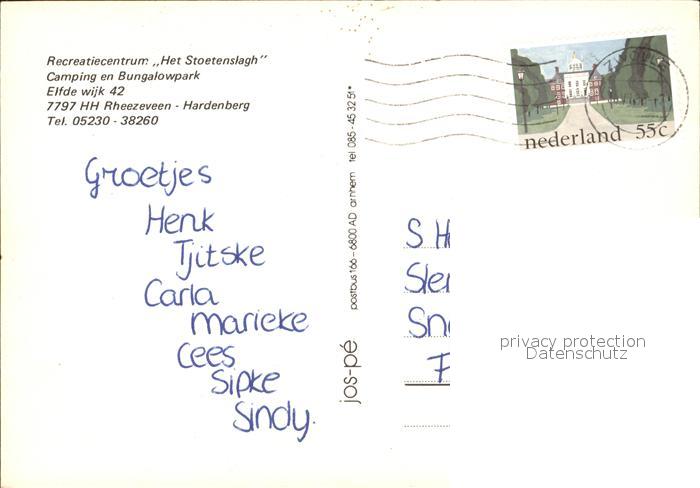 Recreatiecentrum ,,Het Stoetenslagh''
Camping en Bungalowpark
Elfde wijk 42
7797 HH Rheezeveen - Hardenberg
Tel. 05230 - 38260
Groetjes
Henk
Tjitske
Carla
Marieke
Cees
Sipke
Sindy.
jos-pé postbus 166 – 6800 AD arnhem tel 085 - 45 32 51*
nederland 55c
S H
Sle
Sn
F
privacy protection
Datenschutz